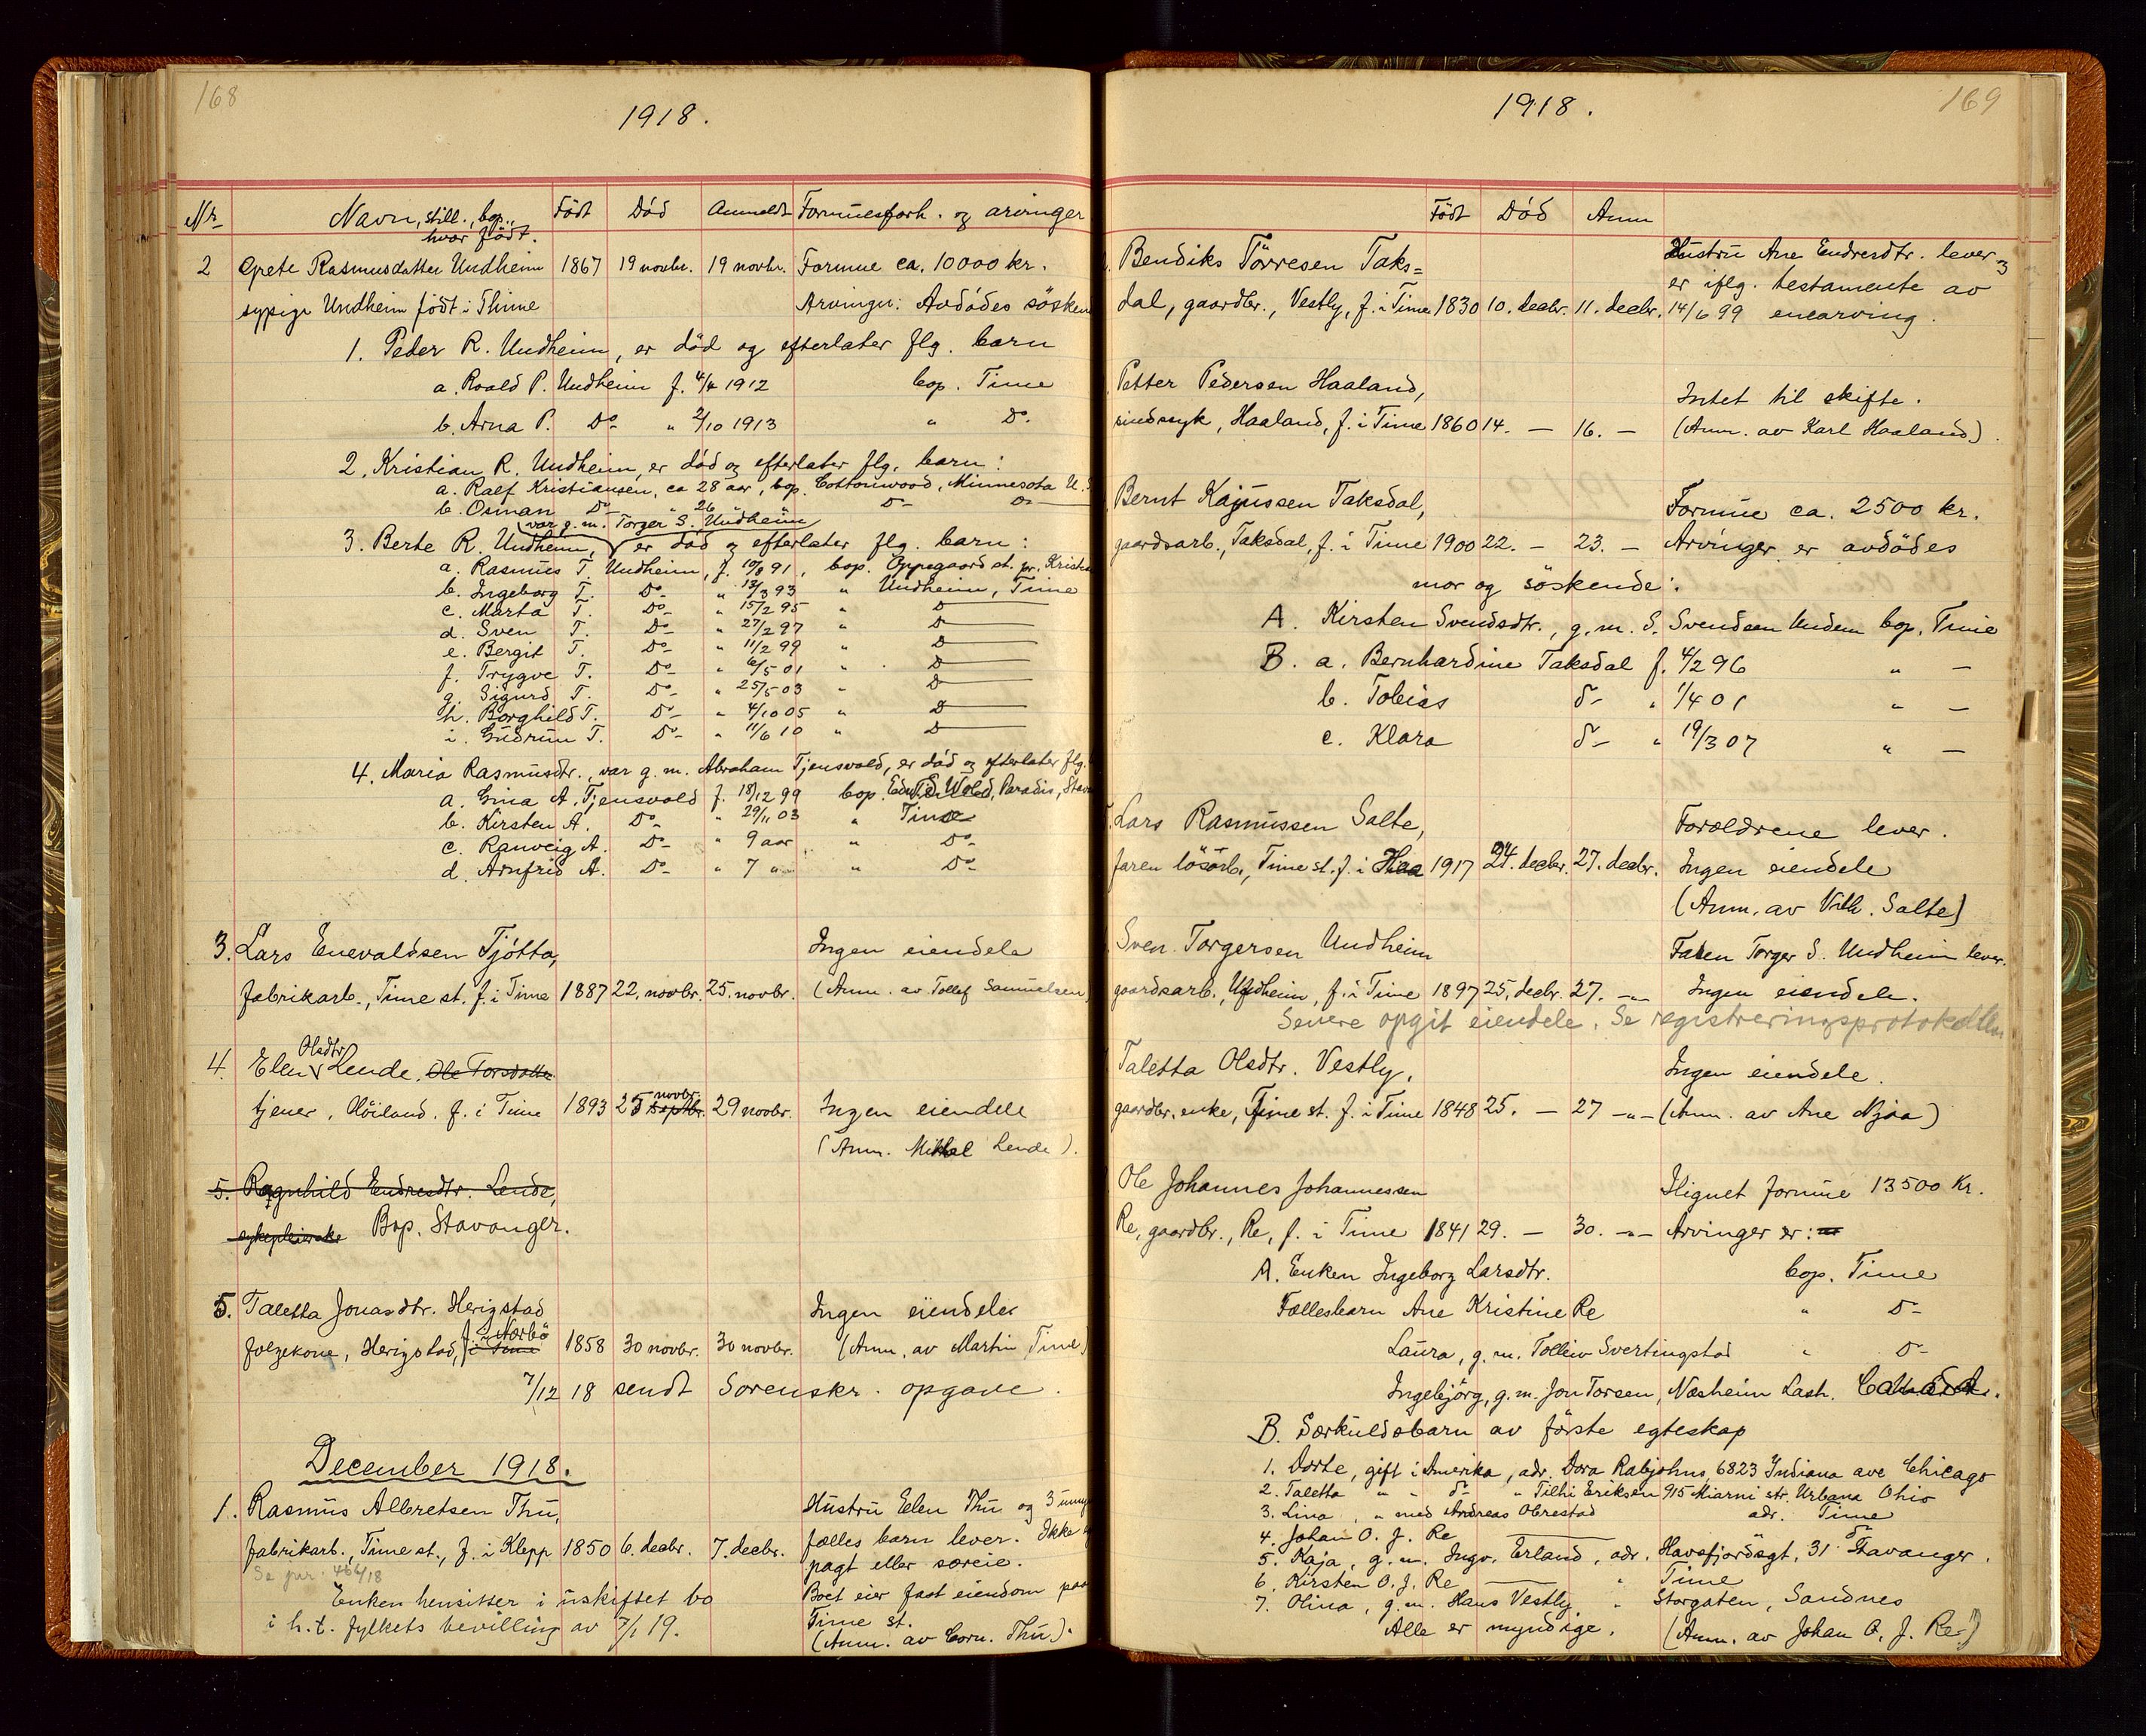 168
1918.
Nr. Navn, still., bop., Født Död Anmeldt Formuesforh. og arvinger
hvor født.
2 Grete Rasmusdatter Undheim 1867 19 novbr. 19 novbr. Formue ca. 10000 kr.
sypige Undheim född i Thime Arvinger: Avdödes sösken
1. Peder R. Undheim, er död og efterlater flg. barn
a. Roald P. Undheim f. 4/4 1912 bop. Time
b. Arna P. Do- " 2/10 1913 " Do.
2. Kristian R. Undheim, er död og efterlater flg. barn:
a. Ralf Kristiansen, ca 28 aar, bop. Cottonwood, Minnesota U.S.
b. Osman Do- " 26 " " Do- Do-
(var g. m. Torger S. Undheim)
3. Berte R. Undheim, er död og efterlater flg. barn:
a. Rasmus T. Undheim, f. 10/8 91, bop. Oppegaard st. pr. Kristia
b. Ingeborg T. Do- " 13/3 93 " Undheim, Time
c. Marta T. Do- " 15/2 95 " D
d. Sven T. Do- " 27/2 97 " D
e. Bergit T. Do- " 11/2 99 " D
f. Trygve T. Do- " 6/5 01 " D
g. Sigurd T. Do- " 25/5 03 " D
h. Borghild T. Do- " 4/10 05 " D
i. Gudrun T. Do- " 11/6 10 " D
4. Maria Rasmusdtr., var g. m. Abraham Tjensvold, er död og efterlater flg.
a. Gina A. Tjensvold f. 18/12 99 bop. Wold, Paradis, Stav
b. Kirsten A. Do- " 29/11 03 " Time
c. Ranveig A. Do- " 9 aar " Do-
d. Arnfrid A. Do- " 7 " " Do-
3. Lars Enevaldsen Tjötta, Ingen eiendele
fabrikarb., Time st. f. i Time 1887 22. novbr. 25. novbr. (Anm. av Tollef Samuelsen)
Olsdtr
4. Elen Lende, Ole Torsdatter
novbr.
tjener, Höiland. f. i Time 1893 25 septbr. 29 novbr. Ingen eiendele
(Anm. Mikkel Lende).
5. Ragnhild Endresdtr. Lende,
sykepleierske Bop. Stavanger.
5. Taletta Jonasdtr. Herigstad Ingen eiendeler
f. i Nærbö
folgekone, Herigstad, f. i Time 1858 30 novbr. 30 novbr. (Anm. av Martin Time)
7/12 18 sendt Sorenskr. opgave.
December 1918.
1. Rasmus Albretsen Thu, Hustru Elen Thu og 3 umyn
fabrikarb., Time st., f. i Klepp 1850 6. decbr. 7. decbr. fælles barn lever. Ikke
Se jnr. 464/18 pagt eller særeie.
Enken hensitter i uskiftet bo Boet eier fast eiendom paa
i h.t. fylkets bevilling av 7/1 19. Time st.
(Anm. av Corn. Thu).
169
1918.
Født Död Anm
Bendiks Törresen Taks= Hustru Ane Endresdtr. lever og
er iflg. testamente av
dal, gaardbr., Vestly, f. i Time 1830 10. decbr. 11. decbr. 14/6 99 enearving.
Petter Pedersen Haaland, Intet til skifte.
sindssyk, Haaland, f. i Time 1860 14. — 16. — (Anm. av Karl Haaland).
Bernt Kajussen Taksdal, Formue ca. 2500 kr.
gaardsarb., Taksdal, f. i Time 1900 22. — 23. — Arvinger er avdödes
mor og söskende:
A. Kirsten Svendsdtr., g. m. S. Svendsen Undem bop. Time
B. a. Bernhardine Taksdal f. 4/2 96 " —
b. Tobias d- " 1/4 01 " —
c. Klara d- " 19/3 07 " —
Lars Rasmussen Salte, Forældrene lever.
faren lösarb., Time st. f. i Haa 1917 24. decbr. 27. decbr. Ingen eiendele
(Anm. av Vilh. Salte)
Sven Torgersen Undheim Faren Torger S. Undheim lever.
gaardsarb., Undheim, f. i Time 1897 25. decbr. 27. -"- Ingen eiendele.
Senere opgit eiendele. Se registreringsprotokollen
Taletta Olsdtr. Vestly, Ingen eiendele.
gaardbr. enke, Time st. f. i Time 1848 25. — 27 -"- (Anm. av Ane Njaa)
Ole Johannes Johannessen Ilignet formue 13500 Kr.
Re, gaardbr., Re, f. i Time 1841 29. — 30. -"- Arvinger er:
A. Enken Ingeborg Larsdtr. bop. Time
Fællesbarn Ane Kristine Re " D-
Laura, g. m. Tolleiv Svertingstad " D-
Ingebjörg, g. m. Jon Torsen, Næsheim Lash. Canada.
B. Særkuldsbarn av förste egteskap
1. Dorte, gift i Amerika, adr. Dora Rabjohns, 6823 Indiana ave Chicago
2. Taletta " " d- " Tilhi Eriksen 915 Miami str. Urbana Ohio
3. Lina, " med Andreas Obrestad adr. Time
4. Johan O. J. Re d-
5. Kaja, g. m. Ingv. Erland, adr. Havsfjordsgt. 31 Stavanger.
6. Kirsten O. J. Re " Time
7. Olina, g. m. Hans Vestly " Storgaten, Sandnes
Alle er myndige. (Anm. av Johan O. J. Re.)